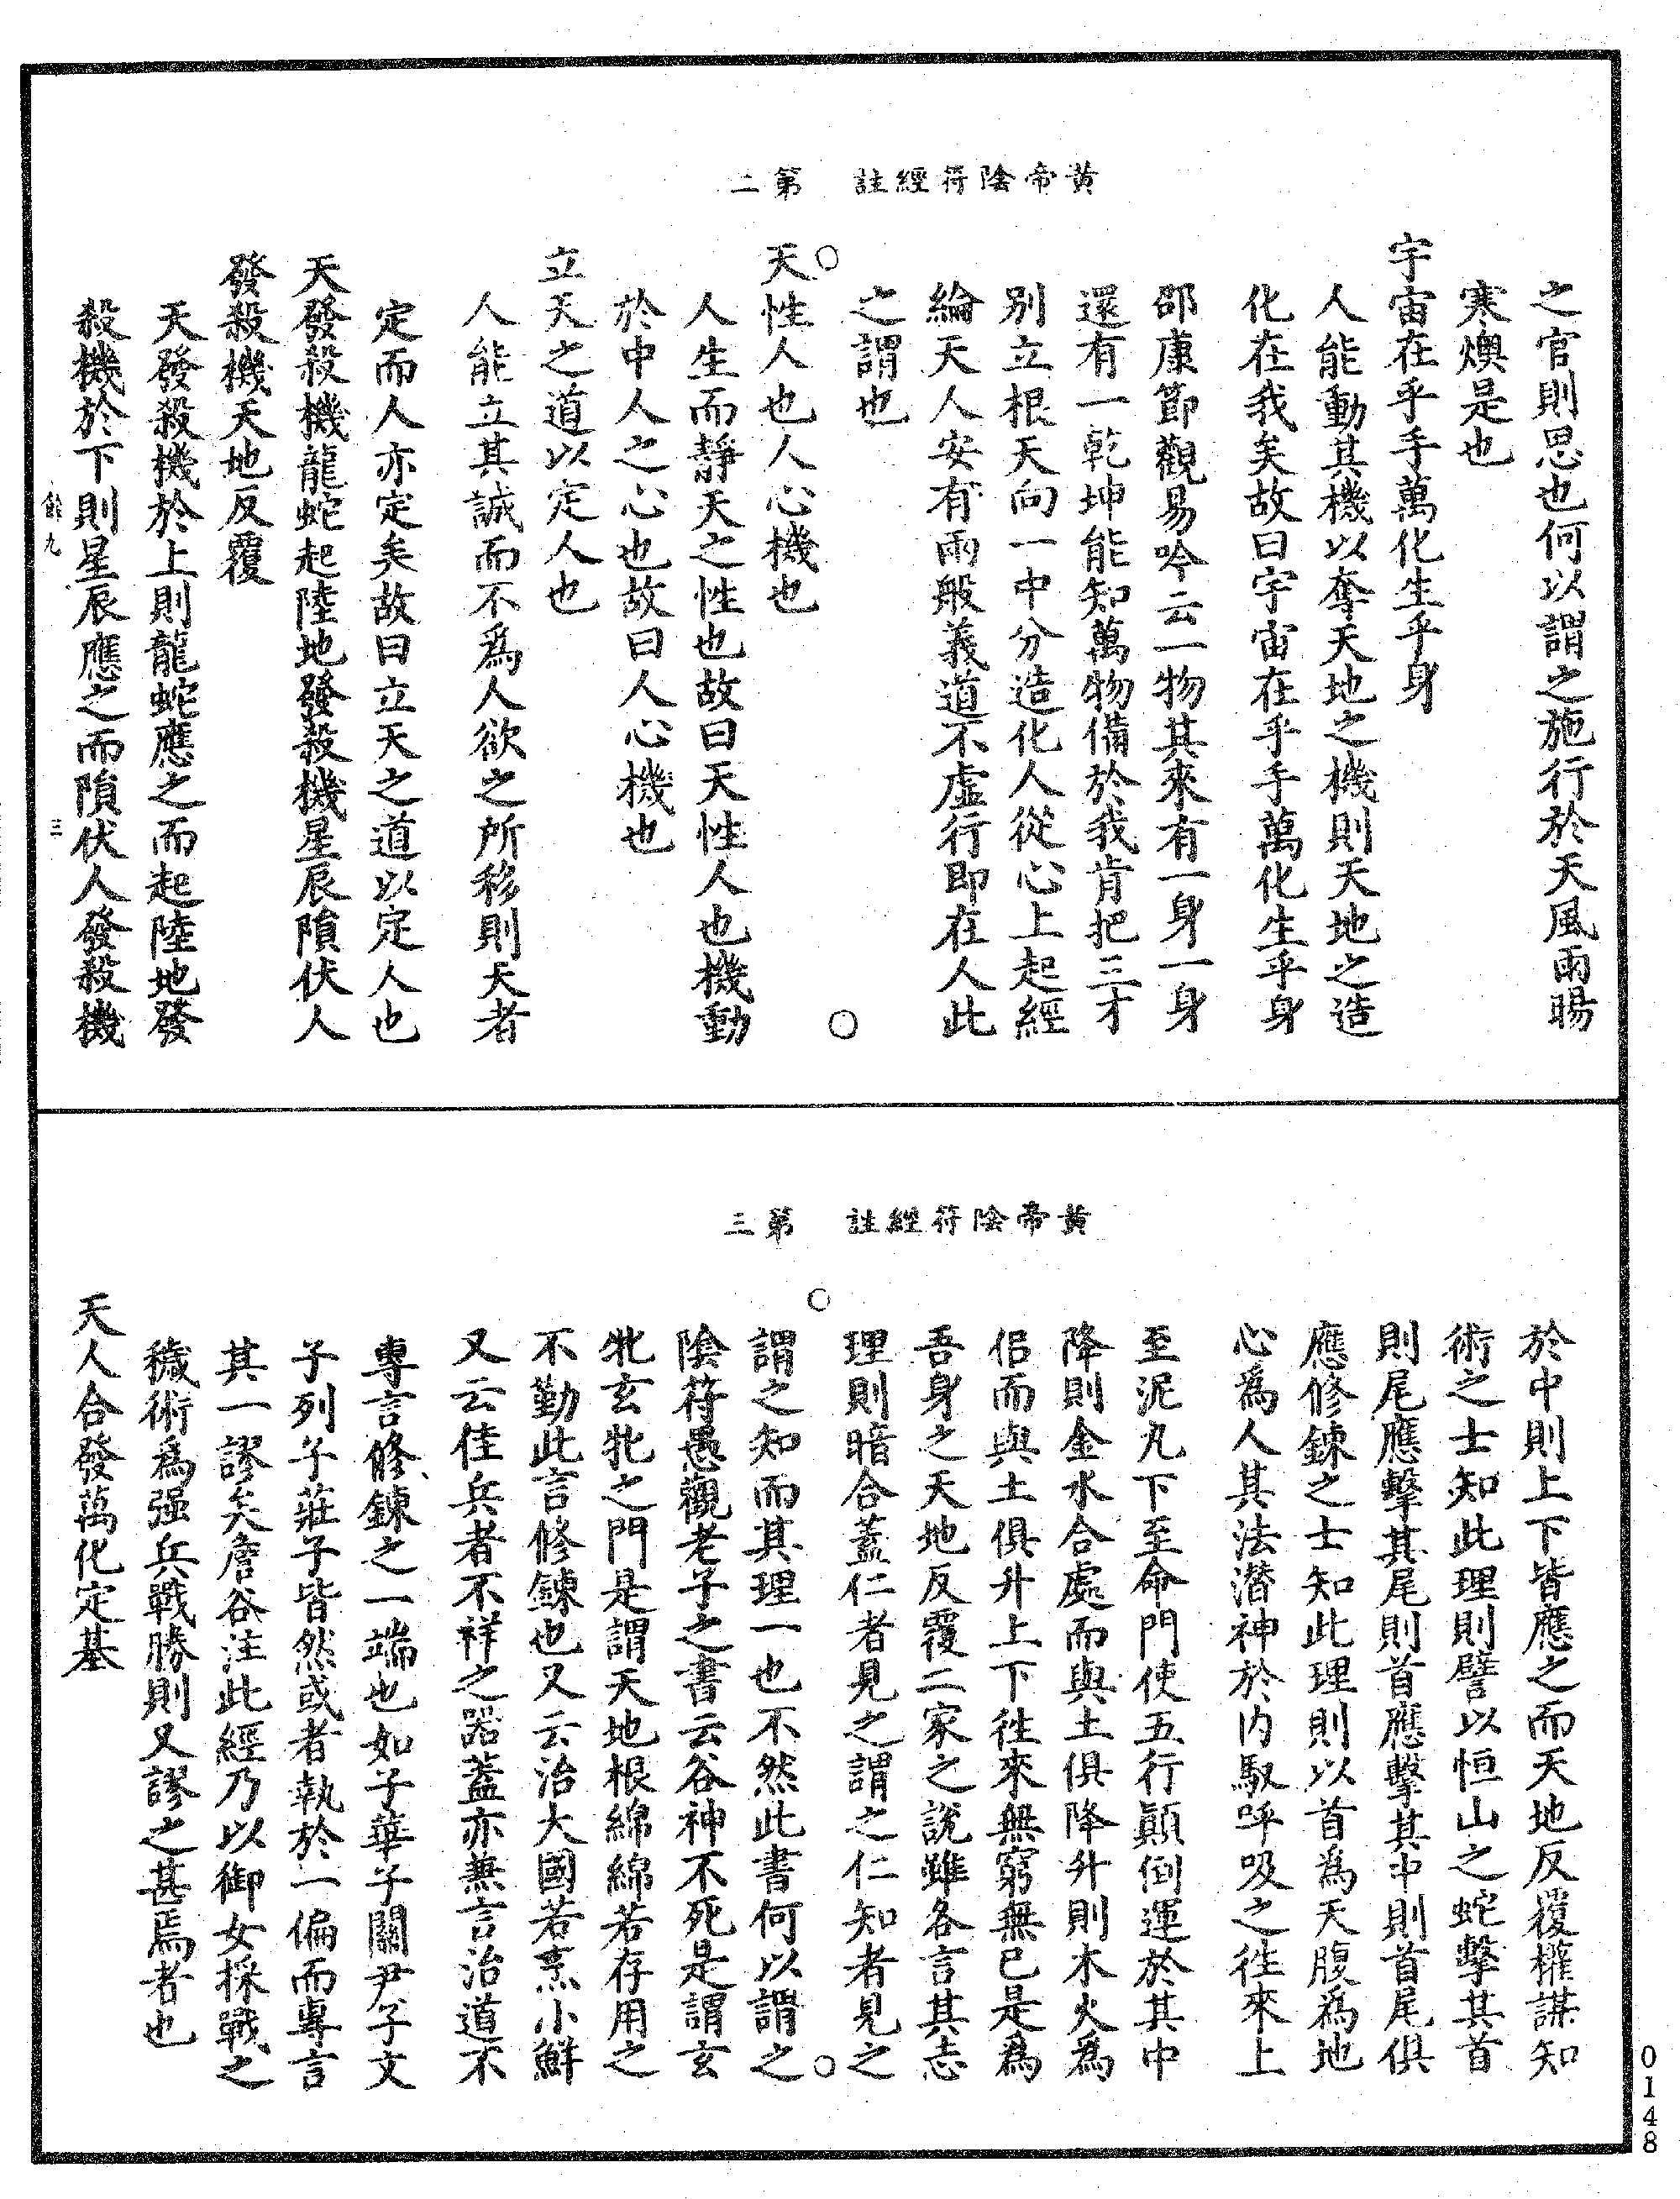 黃帝陰符經註　第二
之官則思也何以謂之施行於天風雨暘
寒燠是也
宇宙在乎手萬化生乎身
人能動其機以奪天地之機則天地之造
化在我矣故曰宇宙在乎手萬化生乎身
邵康節觀易吟云一物其來有一身一身
還有一乾坤能知萬物備於我肯把三才
別立根天向一中分造化人從心上起經
綸天人安有兩般義道不虛行即在人此
之謂也
○
○
天性人也人心機也
人生而靜天之性也故曰天性人也機動
於中人之心也故曰人心機也
立天之道以定人也
人能立其誠而不爲人欲之所移則天者
定而人亦定矣故曰立天之道以定人也
天發殺機龍蛇起陸地發殺機星辰隕伏人
發殺機天地反覆
天發殺機於上則龍蛇應之而起陸地發
殺機於下則星辰應之而隕伏人發殺機
九
三
黃帝陰符經註　第三
於中則上下皆應之而天地反覆權謀知
術之士知此理則譬以恒山之蛇擊其首
則尾應擊其尾則首應擊其中則首尾俱
應修鍊之士知此理則以首為天腹為地
心爲人其法潛神於內馭呼吸之往來上
至泥丸下至命門使五行顛倒運於其中
降則金水合處而與土俱降升則木火爲
侶而與土俱升上下往來無窮無已是爲
吾身之天地反覆二家之說雖各言其志
理則暗合蓋仁者見之謂之仁知者見之
○
○
謂之知而其理一也不然此書何以謂之
陰符愚觀老子之書云谷神不死是謂玄
牝玄牝之門是謂天地根綿綿若存用之
不勤此言修鍊也又云治大國若烹小鮮
又云佳兵者不祥之器蓋亦兼言治道不
專言修鍊之一端也如子華子關尹子文
子列子莊子皆然或者執於一偏而專言
其一謬矣詹谷注此經乃以御女採戰之
穢術爲强兵戰勝則又謬之甚焉者也
天人合發萬化定基
0148